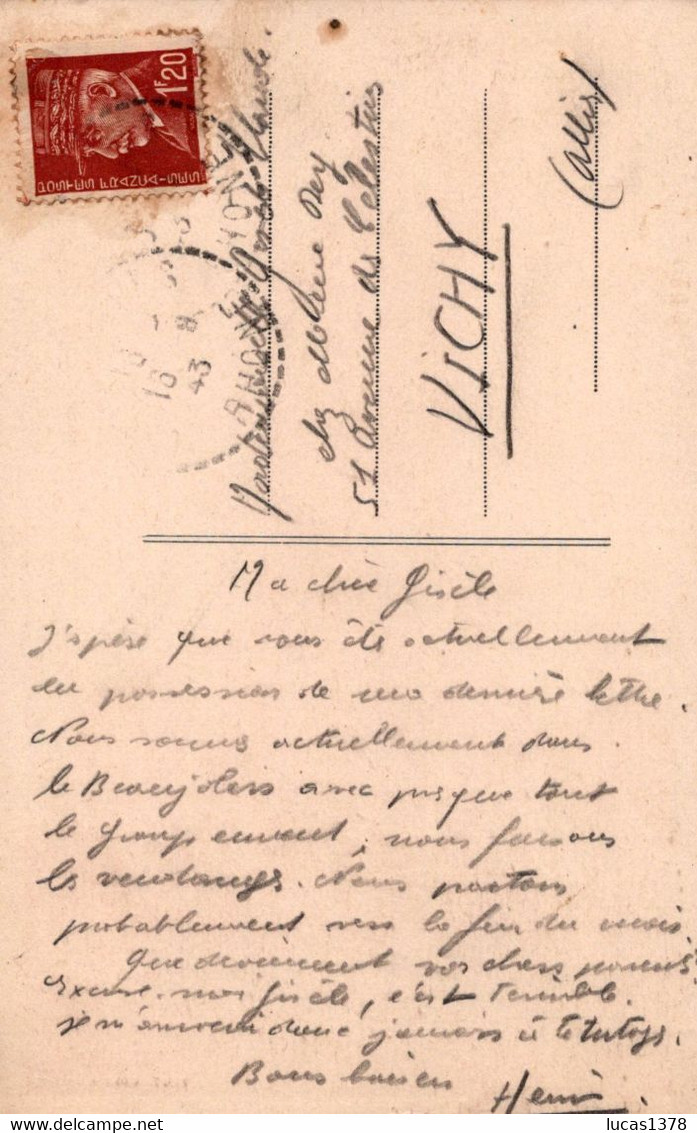 1F20
POSTES FRANÇAISES
RHONE
18
43
Mademoiselle Gisèle Claude.
chez Mme Rey
51 Avenue des Celestins
VICHY
(Allier)
Ma chère Gisèle
J'espère que vous êtes actuellement
en possession de ma dernière lettre.
Nous sommes actuellement dans
le Beaujolais avec presque tout
le groupement, nous faisons
les vendanges. Nous partons
probablement vers la fin du mois.
Que deviennent vos chers parents
Excuse-moi Gisèle, c'est terrible.
je n'arriverai donc jamais à te tutoyer.
Bons baisers
Henri.
lucas1378